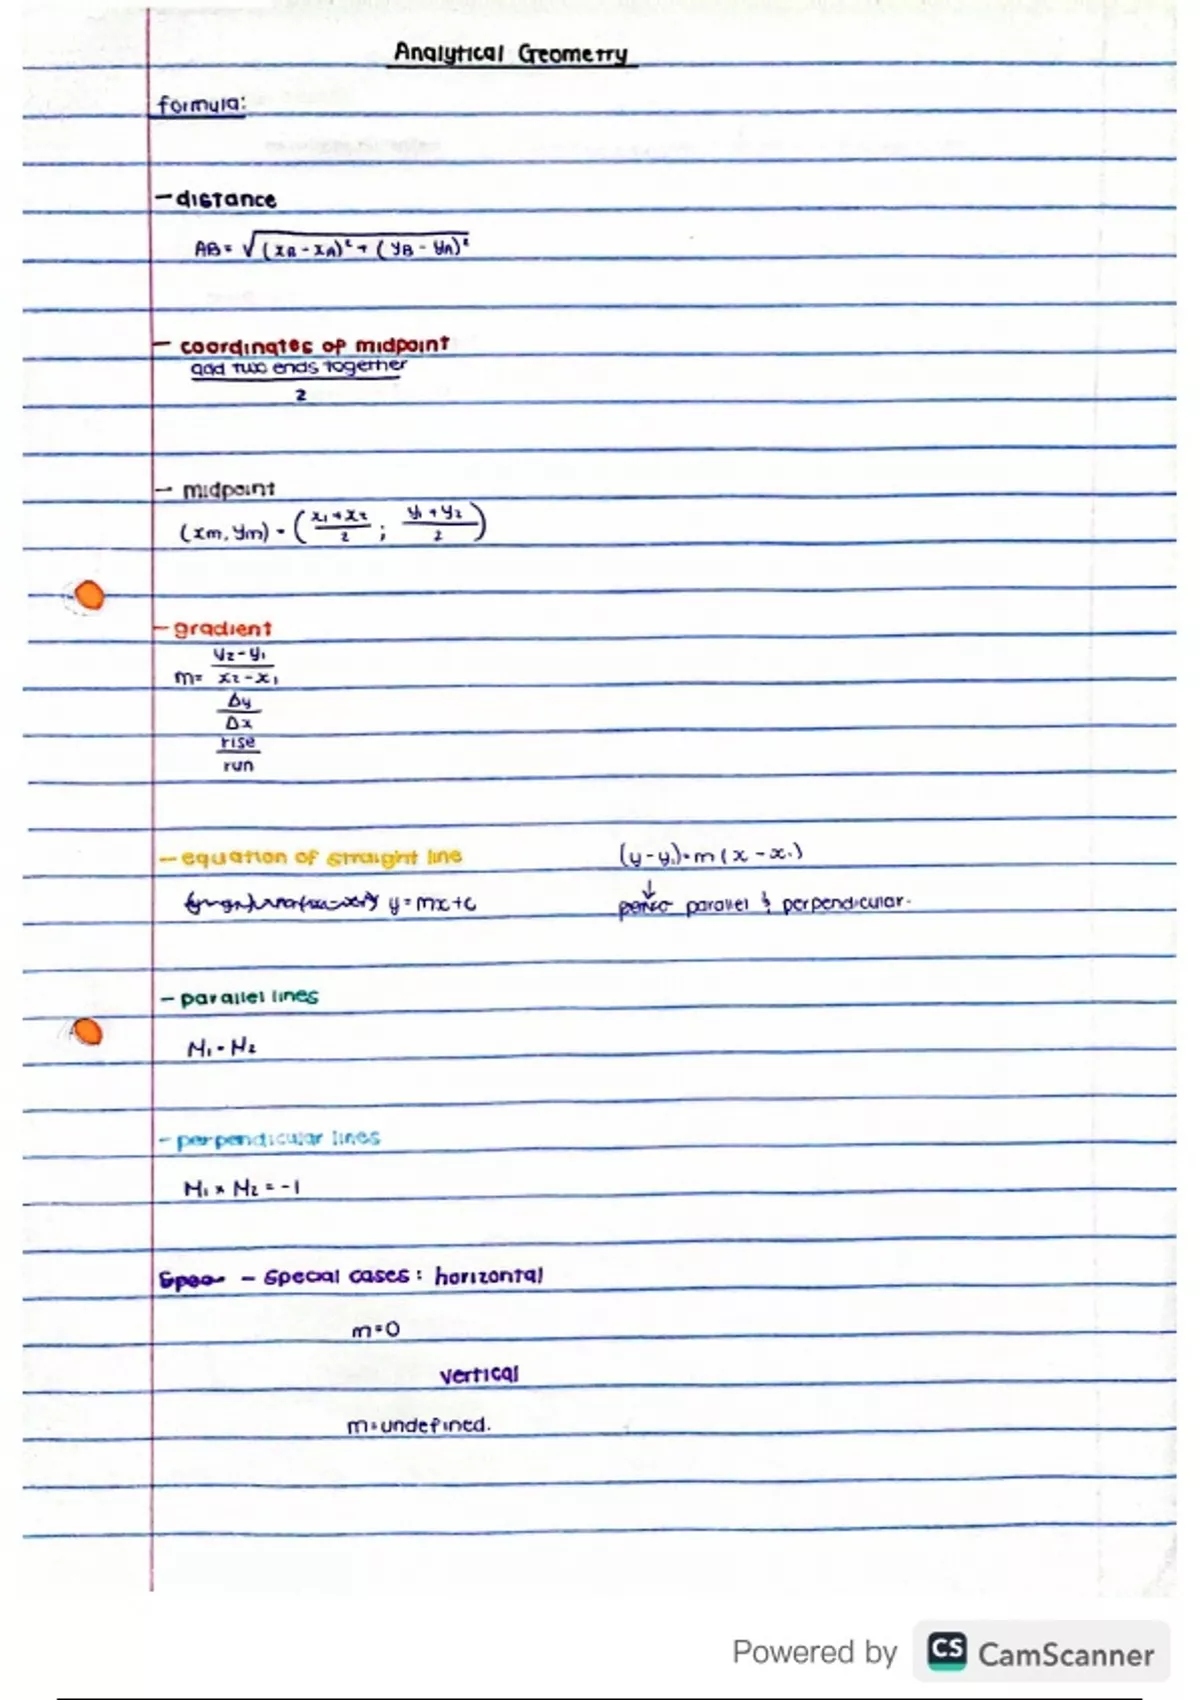 Analytical Geometry
formula:
- distance
AB = √(xB - xA)² + (yB - yA)²
- coordinates of midpoint
add two ends together
2
- midpoint
(xm, ym) = (x₁ + x₂ / 2 ; y₁ + y₂ / 2)
- gradient
m = y₂ - y₁ / x₂ - x₁
Δy
Δx
rise
run
- equation of straight line (y - y₁) = m (x - x₁)
y = mx + c ↓ parallel & perpendicular.
- parallel lines
M₁ = M₂
- perpendicular lines
M₁ × M₂ = -1
- Special cases : horizontal
m = 0
vertical
m = undefined.
Powered by CS CamScanner